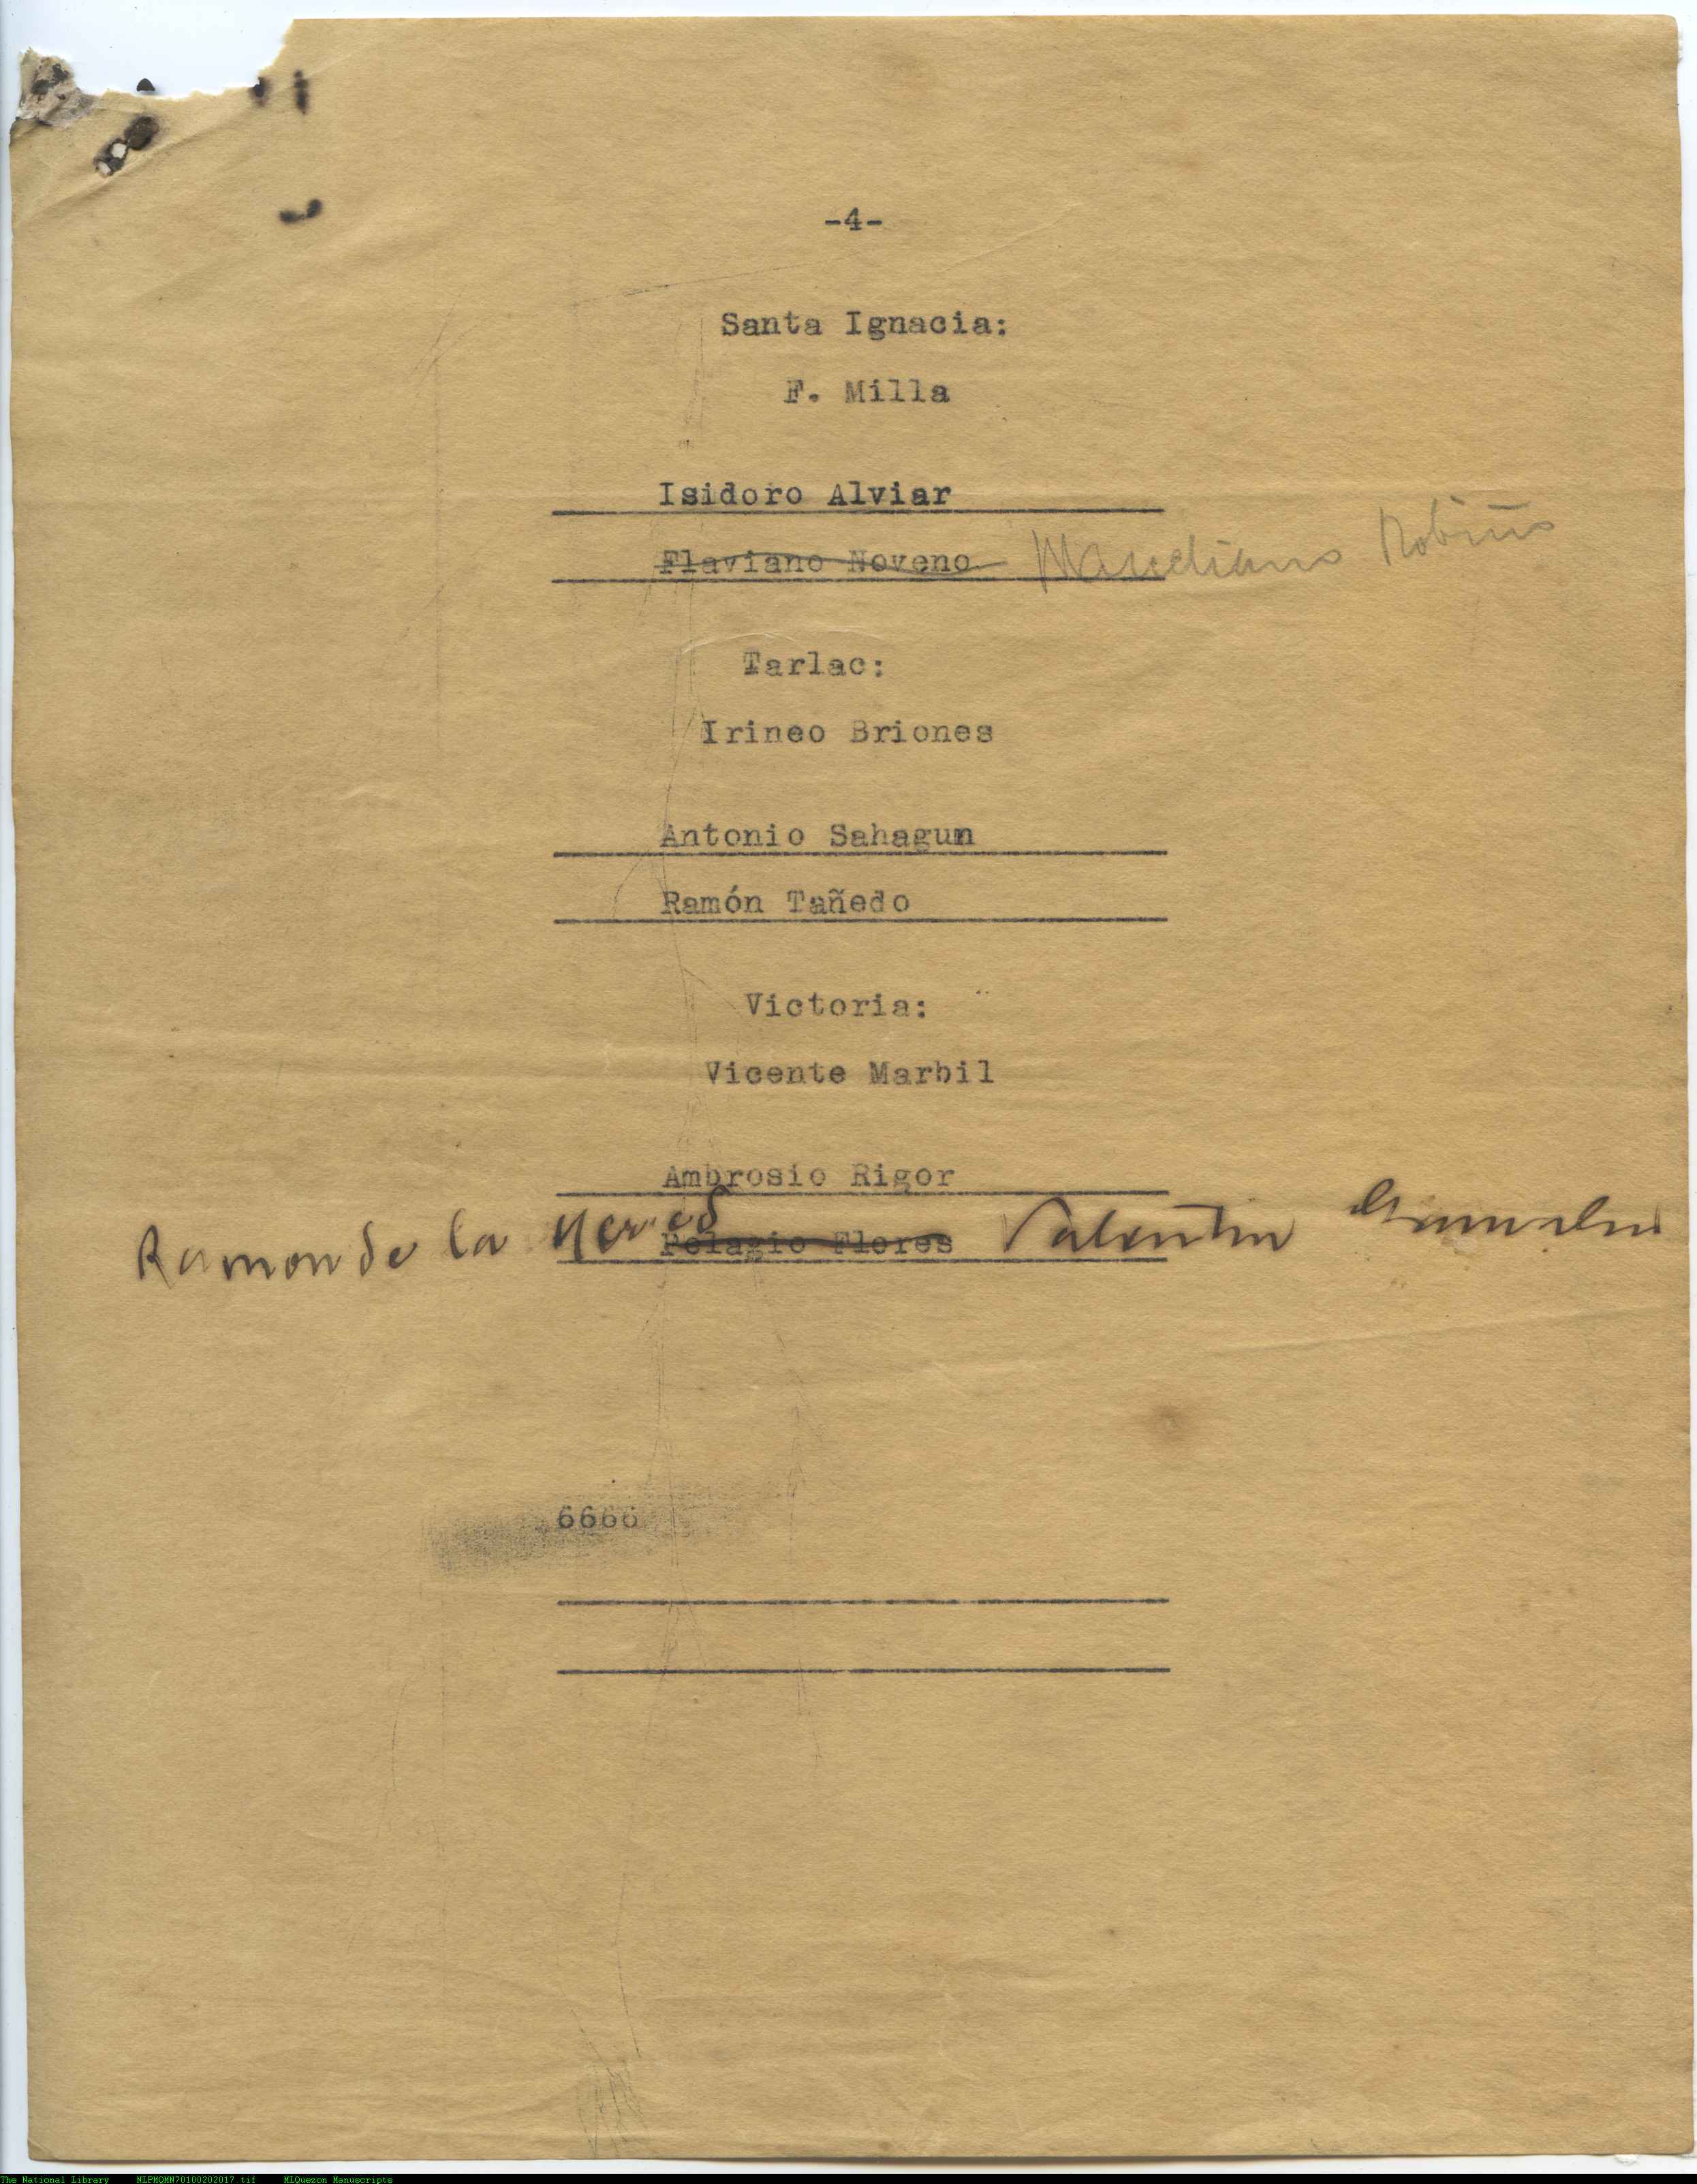 -4-
Santa Ignacia:
F. Milla
Isidoro Alviar
Flaviano Noveno
Tarlac:
Irineo Briones
Antonio Sahagun
Ramón Tañedo
Victoria:
Vicente Marbil
Ambrosio Rigor
Ramon de la Merced Pelagio Flores Valentin
6666
The National Library NLPMQMN70100202017.tif MLQuezon Manuscripts